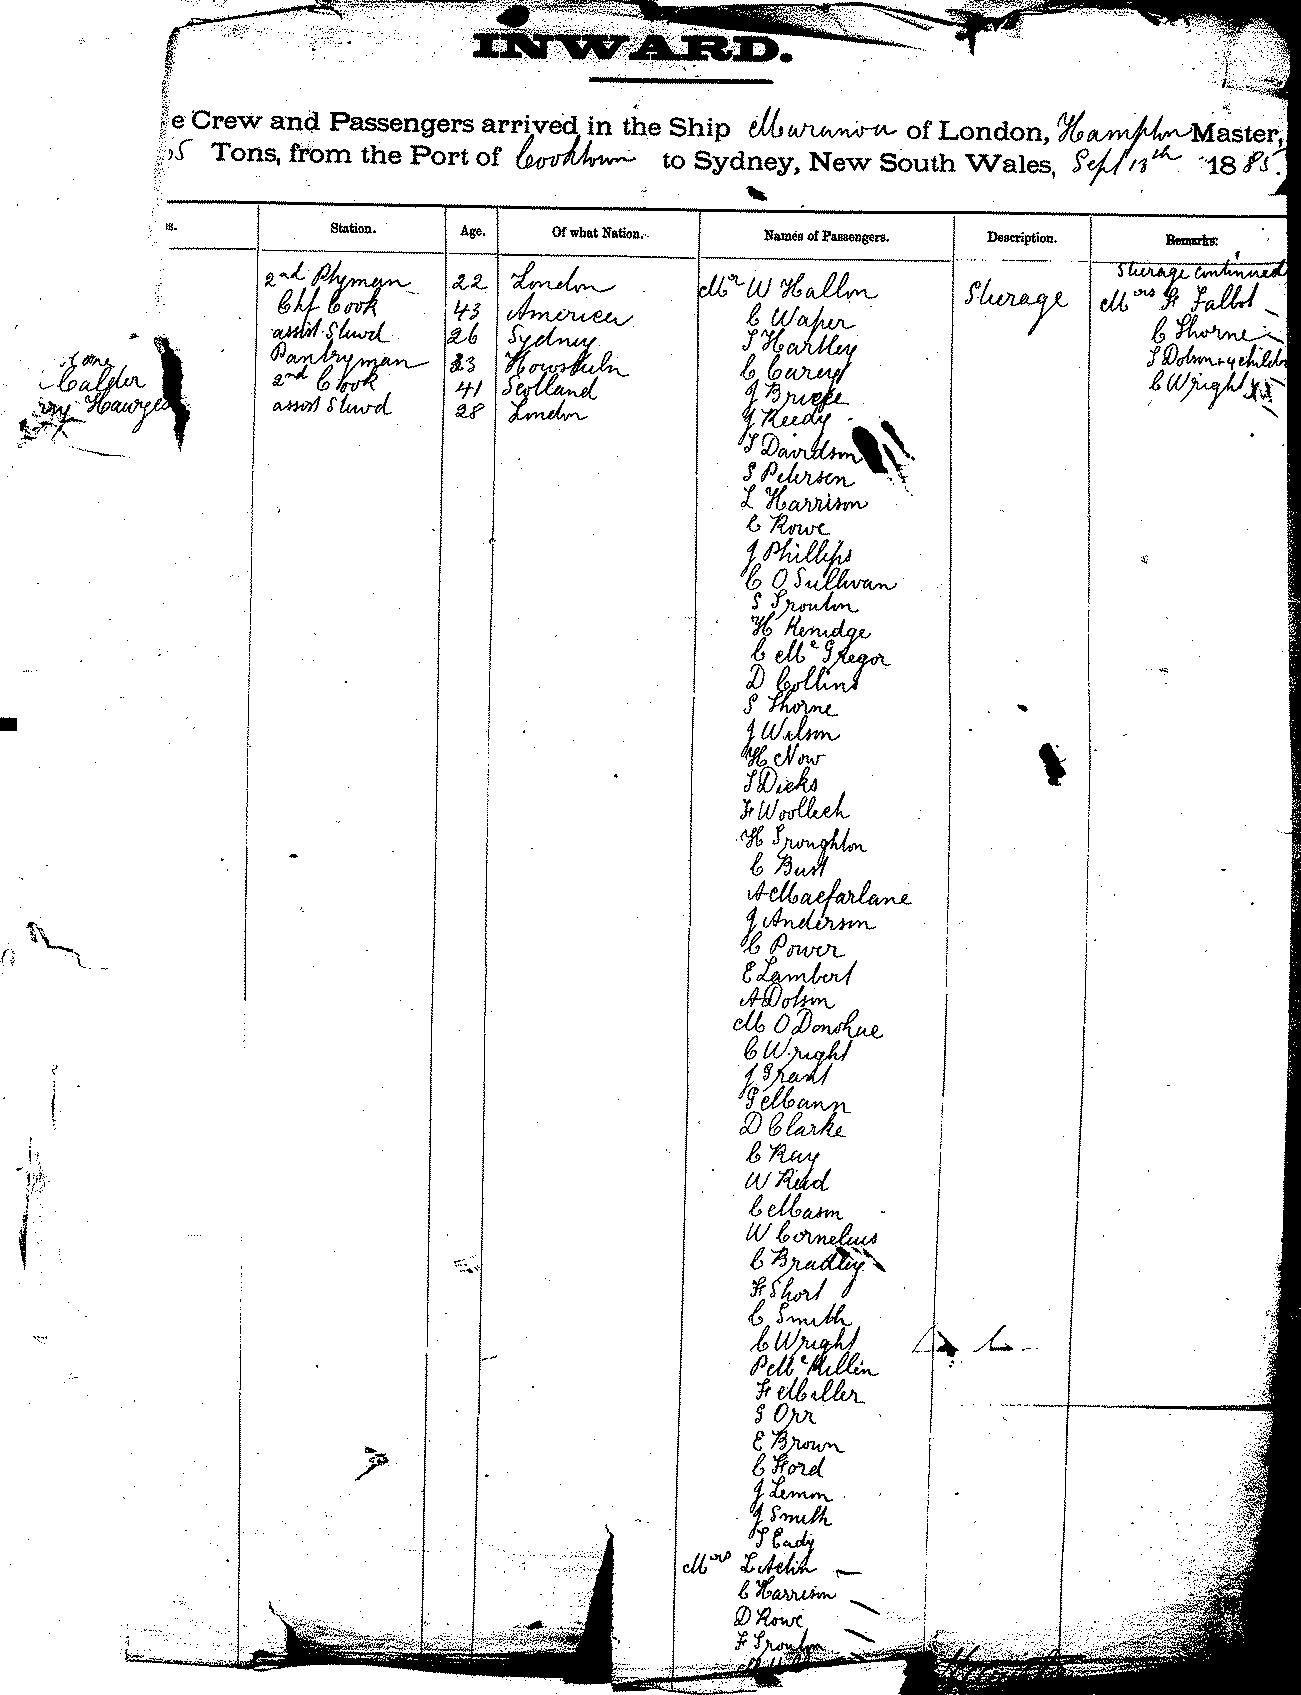 INWARD.
e Crew and Passengers arrived in the Ship Maranoa of London, Hampton Master,
5 Tons, from the Port of Cooktown to Sydney, New South Wales, Sept 13th 1885.
s. Station. Age. Of what Nation. Names of Passengers. Description. Remarks.
Steerage continued
2nd Ptyman 22 London Mr W Hallon Steerage Mrs F Talbot
Chf Cook 43 America C Waper C Thorne
assist Stewd 26 Sydney T Hartley T Dotson & child
Pantryman 23 C Carey C Wright
Calder 2nd Cook 41 Scotland J
assist Stewd 28 London J Reedy
T Davidson
S Petersen
L Harrison
C Rowe
J Phillips
C O Sullivan
S Trouton
H Kenidge
C McGregor
D Collins
S Thorne
J Wilson
H Now
T Dicks
F Woollech
H Troughton
C Bust
A Macfarlane
J Anderson
C Power
E Lambert
A Dotson
M O Donohue
C Wright
J Grant
G Mann
D Clarke
C Ray
W Reid
C Mason
W Cornelius
C Bradley
F Short
C Smith
C Wright
P McKillin
F Miller
S Orr
E Brown
C Ford
J Lemon
J Smith
T Eady
Mrs L
C Harrison
D Rowe
F Trouton